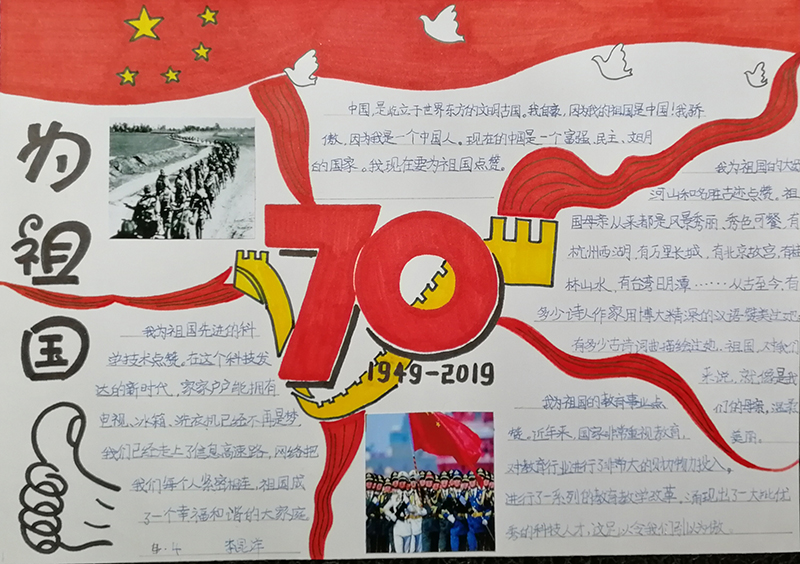 为祖国
中国，是屹立于世界东方的文明古国。我自豪，因为我的祖国是中国！我骄
傲，因为我是一个中国人。现在的中国是一个富强、民主、文明
的国家。我现在要为祖国点赞。
我为祖国的大好
河山和名胜古迹点赞。祖
国母亲从来都是风景秀丽，秀色可餐，有
杭州西湖，有万里长城，有北京故宫，有桂
林山水，有台湾日月潭……从古至今，有
多少诗人作家用博大精深的汉语赞美过她
有多少古诗词曲描绘过她。祖国，对我们
来说，就像是我
们的母亲，温柔
美丽。
70
1949-2019
我为祖国先进的科
学技术点赞。在这个科技发
达的新时代，家家户户能拥有
电视、冰箱、洗衣机已经不再是梦
我们已经走上了信息高速路，网络把
我们每个人紧密相连，祖国成
了一个幸福和谐的大家庭
四.4
我为祖国的教育事业点
赞。近年来，国家非常重视教育，
对教育行业进行了非常大的财力物力投入。
进行了一系列的教育教学改革，涌现出了一大批优
秀的科技人才，这足以令我们引以为傲。